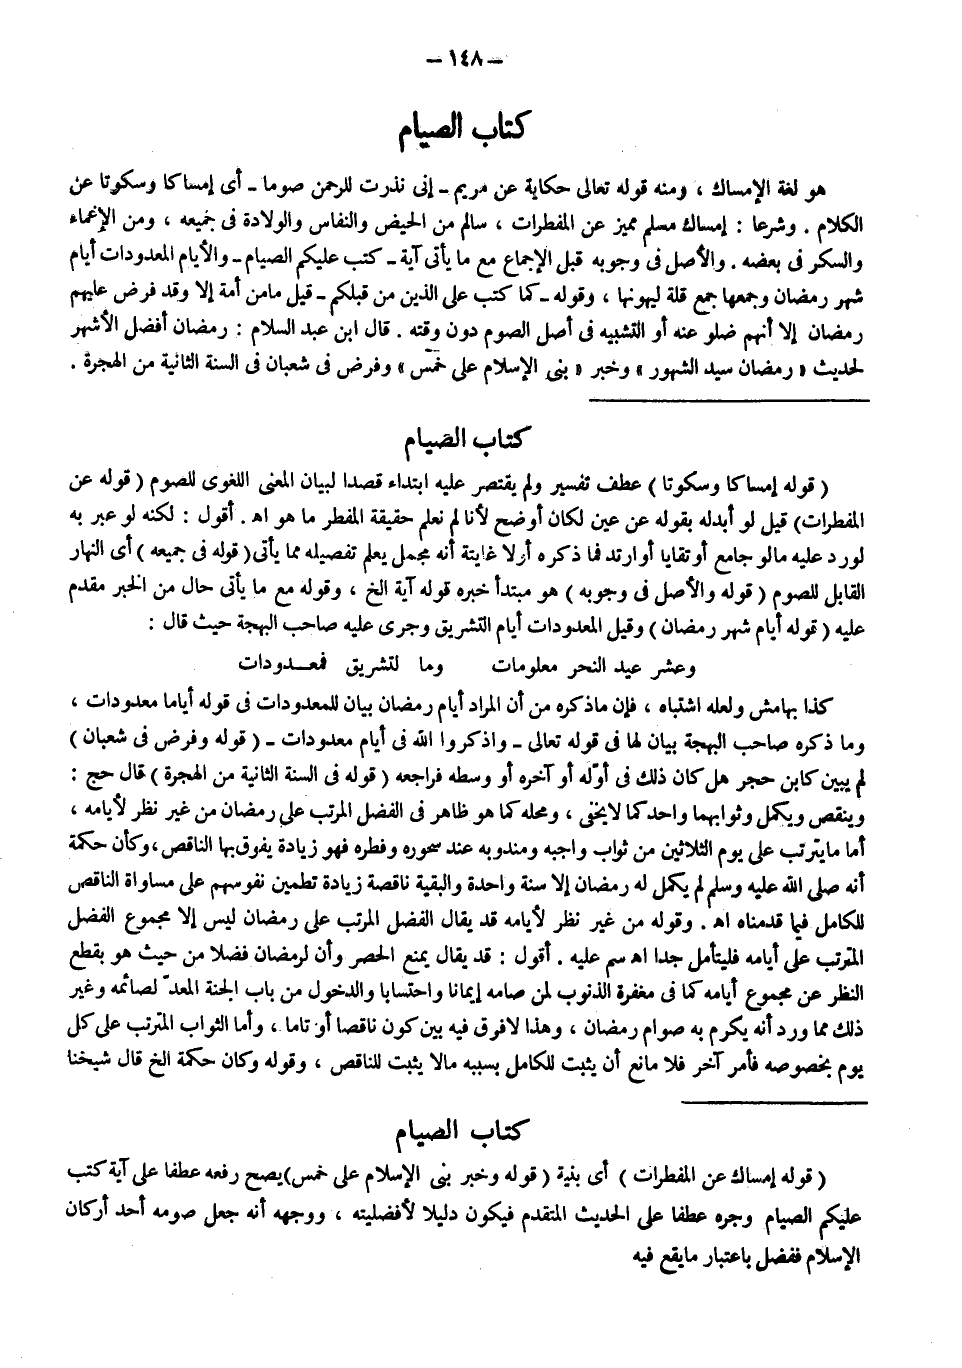 – ١٤٨ –
كتاب الصيام
هو لغة الإمساك ، ومنه قوله تعالى حكاية عن مريم ـ إنى نذرت للرحمن صوما ـ أى إمساكا وسكوتا عن
الكلام . وشرعا : إمساك مسلم مميز عن المفطرات ، سالم من الحيض والنفاس والولادة فى جميعه ، ومن الإغماء
والسكر فى بعضه . والأصل فى وجوبه قبل الإجماع مع ما يأتى آية ـ كتب عليكم الصيام ـ والأيام المعدودات أيام
شهر رمضان وجمعها جمع قلة ليهونها ، وقوله ـ كما كتب على الذين من قبلكم ـ قيل مامن أمة إلا وقد فرض عليهم
رمضان إلا أنهم ضلو عنه أو التشبيه فى أصل الصوم دون وقته . قال ابن عبد السلام : رمضان أفضل الأشهر
لحديث « رمضان سيد الشهور » وخبر « بنى الإسلام على خمس » وفرض فى شعبان فى السنة الثانية من الهجرة .
كتاب الصيام
( قوله إمساكا وسكوتا ) عطف تفسير ولم يقتصر عليه ابتداء قصدا لبيان المعنى اللغوى للصوم ( قوله عن
المفطرات) قيل لو أبدله بقوله عن عين لكان أوضح لأنا لم نعلم حقيقة المفطر ما هو اه . أقول : لكنه لو عبر به
لورد عليه مالو جامع أو تقايا أو ارتد فما ذكره أولا غايتة أنه مجمل يعلم تفصيله مما يأتى ( قوله فى جميعه ) أى النهار
القابل للصوم ( قوله والأصل فى وجوبه ) هو مبتدأ خبره قوله آية الخ ، وقوله مع ما يأتى حال من الخبر مقدم
عليه ( قوله أيام شهر رمضان ) وقيل المعدودات أيام التشريق وجرى عليه صاحب البهجة حيث قال :
وعشر عيد النحر معلومات وما لتشريق فمعدودات
كذا بهامش ولعله اشتباه ، فإن ماذكره من أن المراد أيام رمضان بيان للمعدودات فى قوله أياما معدودات ،
وما ذكره صاحب البهجة بيان لها فى قوله تعالى ـ واذكروا الله فى أيام معدودات ـ ( قوله وفرض فى شعبان )
لم يبين كابن حجر هل كان ذلك فى أوّله أو آخره أو وسطه فراجعه ( قوله فى السنة الثانية من الهجرة ) قال حج :
وينقص ويكمل وثوابهما واحد كما لايخفى ، ومحله كما هو ظاهر فى الفضل المرتب على رمضان من غير نظر لأيامه ،
أما مايترتب على يوم الثلاثين من ثواب واجبه ومندوبه عند سحوره وفطره فهو زيادة يفوق بها الناقص ، وكأن حكمة
أنه صلى الله عليه وسلم لم يكمل له رمضان إلا سنة واحدة والبقية ناقصة زيادة تطمين نفوسهم على مساواة الناقص
للكامل فيما قدمناه اه . وقوله من غير نظر لأيامه قد يقال الفضل المرتب على رمضان ليس إلا مجموع الفضل
المترتب على أيامه فليتأمل جدا اه سم عليه . أقول : قد يقال يمنع الحصر وأن لرمضان فضلا من حيث هو بقطع
النظر عن مجموع أيامه كما فى مغفرة الذنوب لمن صامه إيمانا واحتسابا والدخول من باب الجنة المعدّ لصائمه وغير
ذلك مما ورد أنه يكرم به صوام رمضان ، وهذا لافرق فيه بين كون ناقصا أو تاما ، وأما الثواب المترتب على كل
يوم بخصوصه فأمر آخر فلا مانع أن يثبت للكامل بسببه مالا يثبت للناقص ، وقوله وكان حكمة الخ قال شيخنا
كتاب الصيام
( قوله إمساك عن المفطرات ) أى بنية ( قوله وخبر بنى الإسلام على خمس)يصح رفعه عطفا على آية كتب
عليكم الصيام وجره عطفا على الحديث المتقدم فيكون دليلا لأفضليته ، ووجهه أنه جعل صومه أحد أركان
الإسلام ففضل باعتبار مايقع فيه